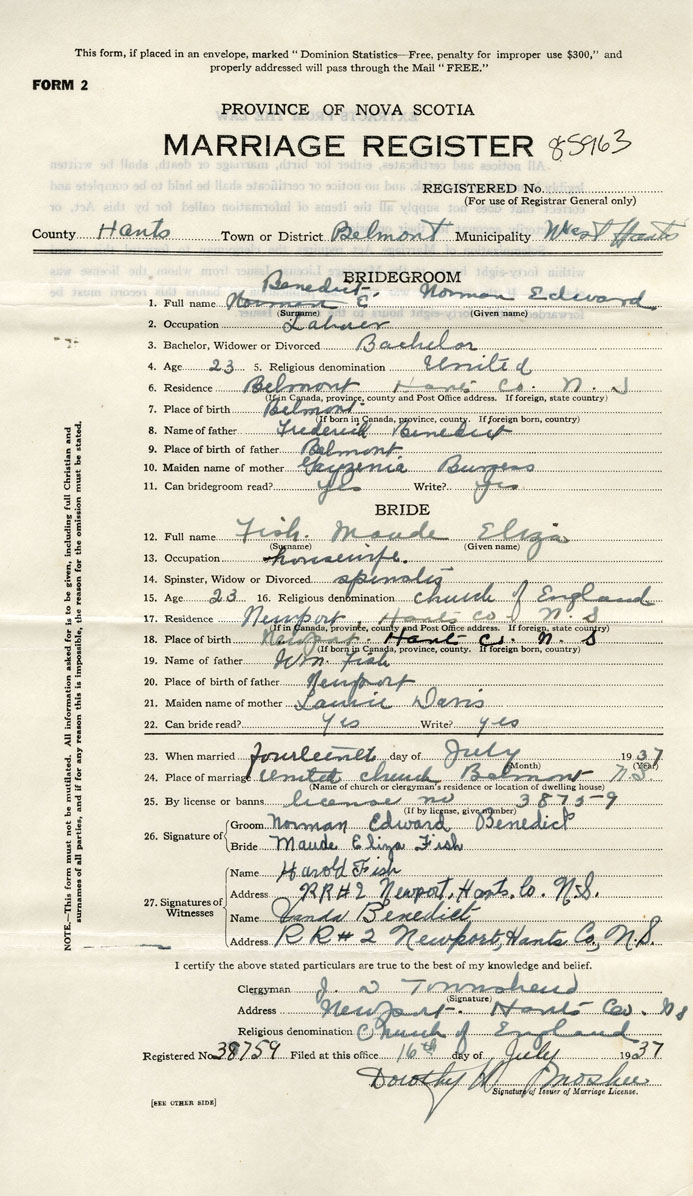 This form, if placed in an envelope, marked "Dominion Statistics—Free, penalty for improper use $300," and
properly addressed will pass through the Mail "FREE."
FORM 2
PROVINCE OF NOVA SCOTIA
MARRIAGE REGISTER 85963
REGISTERED No.
(For use of Registrar General only)
County Hants Town or District Belmont Municipality West Hants
BRIDEGROOM
Benedict,
1. Full name Norman E. Norman Edward
(Surname) (Given name)
2. Occupation Laborer
3. Bachelor, Widower or Divorced Bachelor
4. Age 23 5. Religious denomination United
6. Residence Belmont Hants Co. N. S
(If in Canada, province, county and Post Office address. If foreign, state country)
7. Place of birth Belmont
(If born in Canada, province, county. If foreign born, country)
8. Name of father Frederick Benedict
9. Place of birth of father Belmont
10. Maiden name of mother Burgess
11. Can bridegroom read? yes Write? yes
BRIDE
12. Full name Fish. Maude Eliza
(Surname) (Given name)
13. Occupation housewife.
14. Spinster, Widow or Divorced spinster
15. Age 23 16. Religious denomination Church of England
17. Residence Newport, Hants Co. N. S
(If in Canada, province, county and Post Office address. If foreign, state country)
18. Place of birth Newport. Hants Co. N. S
(If born in Canada, province, county. If foreign born, country)
19. Name of father Wm. Fish
20. Place of birth of father Newport
21. Maiden name of mother Davis
22. Can bride read? Yes Write? yes
23. When married fourteenth day of July 1937
(Month) (Year)
24. Place of marriage United Church Belmont N.S.
(Name of church or clergyman's residence or location of dwelling house)
25. By license or banns license no 38759
(If by license, give number)
26. Signature of
Groom Norman Edward Benedict
Bride Maude Eliza Fish
27. Signatures of Witnesses
Name Harold Fish
Address RR#2 Newport, Hants, Co. N.S.
Name Benedict
Address RR#2 Newport, Hants Co, N.S.
I certify the above stated particulars are true to the best of my knowledge and belief.
Clergyman J. W Townshend
(Signature)
Address Newport. Hants Co. N S
Religious denomination Church of England
Registered No. 38759 Filed at this office 16th day of July 1937
Dorothy W Mosher
Signature of Issuer of Marriage License.
[SEE OTHER SIDE]
NOTE.—This form must not be mutilated. All information asked for is to be given, including full Christian and
surnames of all parties, and if for any reason this is impossible, the reason for the omission must be stated.